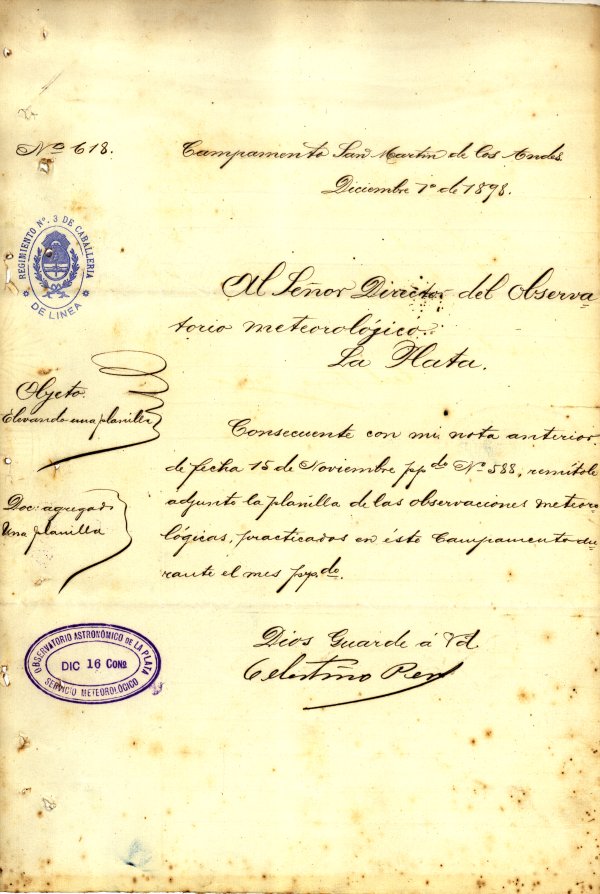 Nº 618.
Campamento San Martin de los Andes
Diciembre 1º de 1898.
REGIMIENTO Nº. 3 DE CABALLERIA
DE LINEA
Al Señor Director del Observa-
torio meteorológico.
La Plata.
Objeto.
Elevando una planilla
Consecuente con mi nota anterior
de fecha 15 de Noviembre ppdo Nº 588, remitole
adjunto la planilla de las observaciones meteoro-
lógicas, practicados en éste Campamento du-
rante el mes ppdo.
Doc: agregado
Una planilla
Dios Guarde á Vd.
Celestino
OBSERVATORIO ASTRONÓMICO DE LA PLATA
DIC 16
SERVICIO METEOROLÓGICO